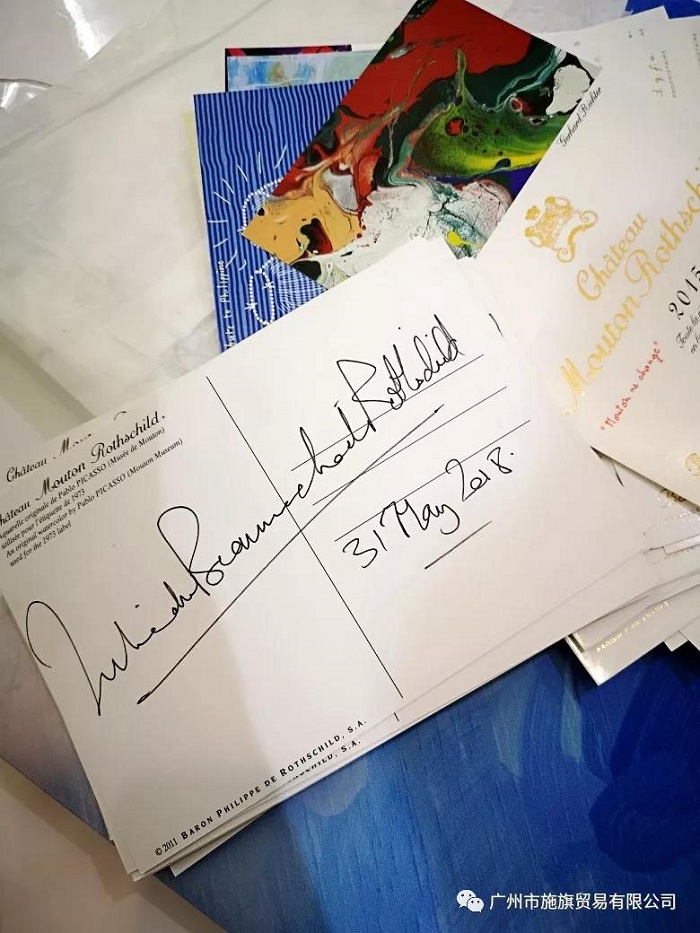 Gerhard Richter
Château
Mouton Rothschi
2015
"Mouton ne change"
Toute la
en b
Château Mou
Château Mouton Rothschild.
Aquarelle originale de Pablo PICASSO (Musée de Mouton)
utilisée pour l'étiquette de 1973
An original watercolor by Pablo PICASSO (Mouton Museum)
used for the 1973 label
Julien de Beaumarchais de Rothschild
31 May 2018.
© 2011 BARON PHILIPPE DE ROTHSCHILD, S.A.
THSCHILD, S.A.
PRODUCE OF FRANCE
广州市施旗贸易有限公司